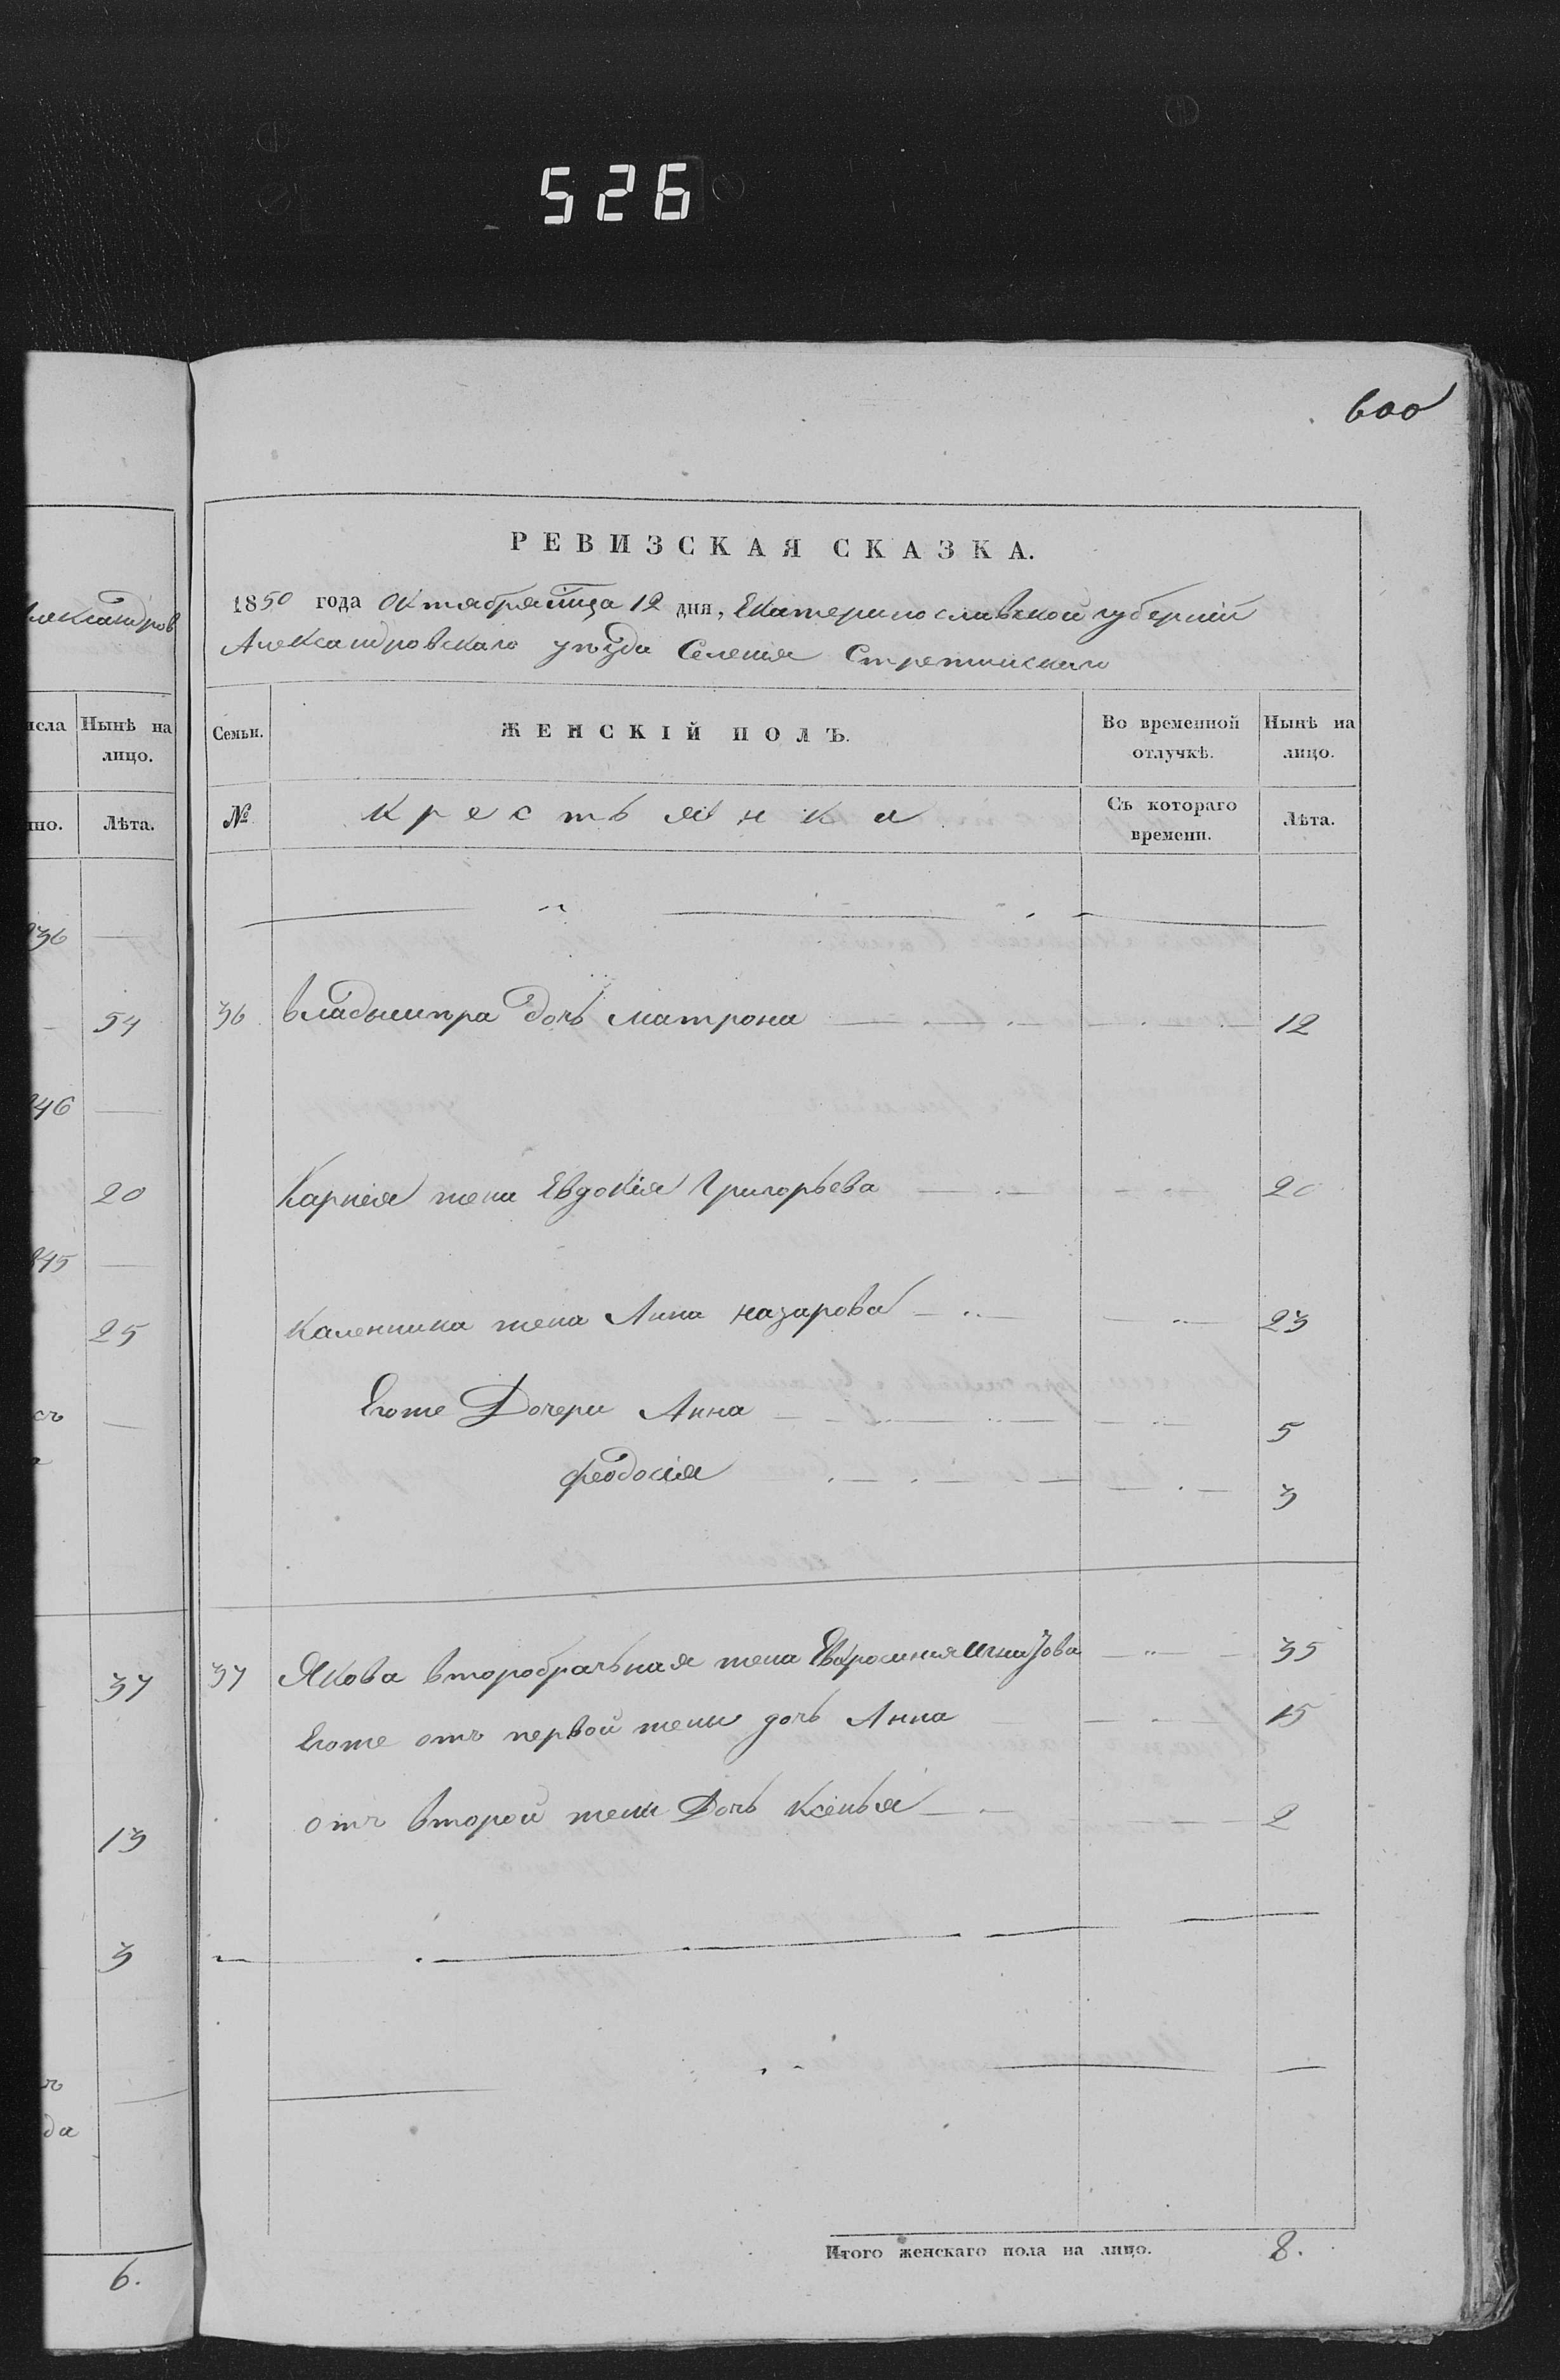 526
600
лександров
исла Нынѣ на
лицо.
но. Лѣта.
36 —
54
46 —
20
45 —
25
съ —
37
13
3
да
6.
РЕВИЗСКАЯ СКАЗКА.
1850 года Октября мца 12 дня, Екатеринославской губерніи
Александровскаго уѣзда Селенія Стретинскаго
Семьи. ЖЕНСКІЙ ПОЛЪ. Во временной отлучкѣ. Нынѣ на лицо.
№ Крестьянка Съ котораго времени. Лѣта.
36 Владымира дочь Матрона 12
Карпія жена Евдокія Григорьева 20
Каленника жена Анна Назарова 23
Егоже Дочери Анна 5
Феодосія 3
37 Якова второбрачьная жена Евфросинія 35
Егоже отъ первой жены дочь Анна 15
отъ второй жены Дочь Ксенья 2
Итого женскаго пола на лицо. 8.